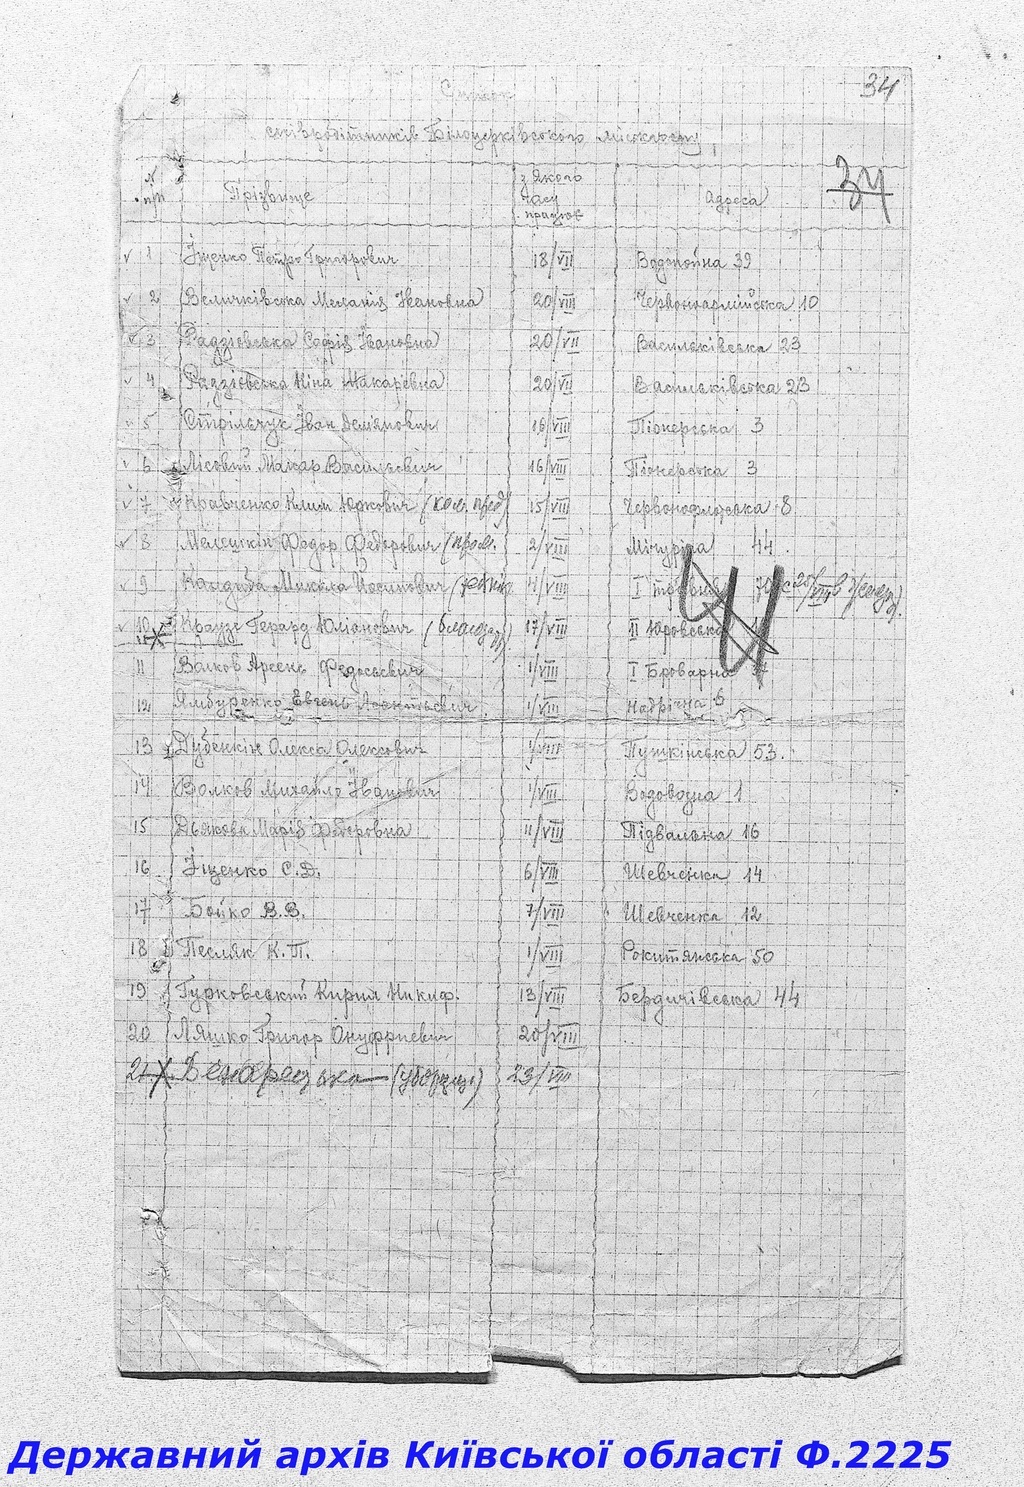 34
Список
співробітників Білоцерківського міськвету
№ п/п Прізвище з якого часу працює Адреса 34
1 Іщенко Петро Григорович 18/VII Водопойна 39
2 Величківська Меланія Івановна 20/VIII Червоноармійська 10
3 Радзієвська Софія Івановна 20/VII Васильківська 23
4 Радзієвська Ніна Макарєвна 20/VII Васильківська 23
5 Стрільчук Іван Демянович 16/VIII Піонерська 3
6 Лісовий Макар Васильевич 16/VIII Піонерська 3
7 Кравченко Клим Юркович 15/VIII Червонофлотська 8
8 Мелешкін Федор Федорович (пром. 2/VIII Мічуріна 44.
9 Кандиба Микола Йосипович 4/VIII I
10 Краузе Герард Юліанович 17/VIII II Юровська
11 Волков Арсень Федосьевич 1/VIII I Броварна
12 Ямбуренко Евгень Леонтьевич 1/VIII Надрічна 6
13 Дубенкін Олекса Олексович 1/VIII Пушкінська 53.
14 Волков Михайло Іванович 1/VIII Водовозна 1
15 Дьякова Марія Федоровна 11/VIII Підвальна 16
16 Іщенко С.Д. 6/VIII Шевченка 14
17 Бойко В.В. 7/VIII Шевченка 12
18 Песляк К.П. 1/VIII Рокитянська 50
19 Гурковський Кирил Никиф. 13/VIII Бердичівська 44
20 Ляшко Григор Онуфриевич 20/VIII
21 23/VIII
Державний архів Київської області Ф.2225